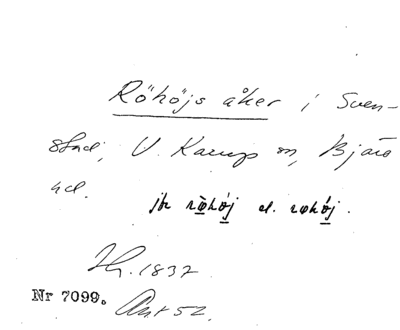 Röhöjs åker i Sven-
stad, V. Karup sn, Bjäre
hd.
jfr röhöj el. røhöj.
Hr. 1837
Nr 7099. Ant 52.